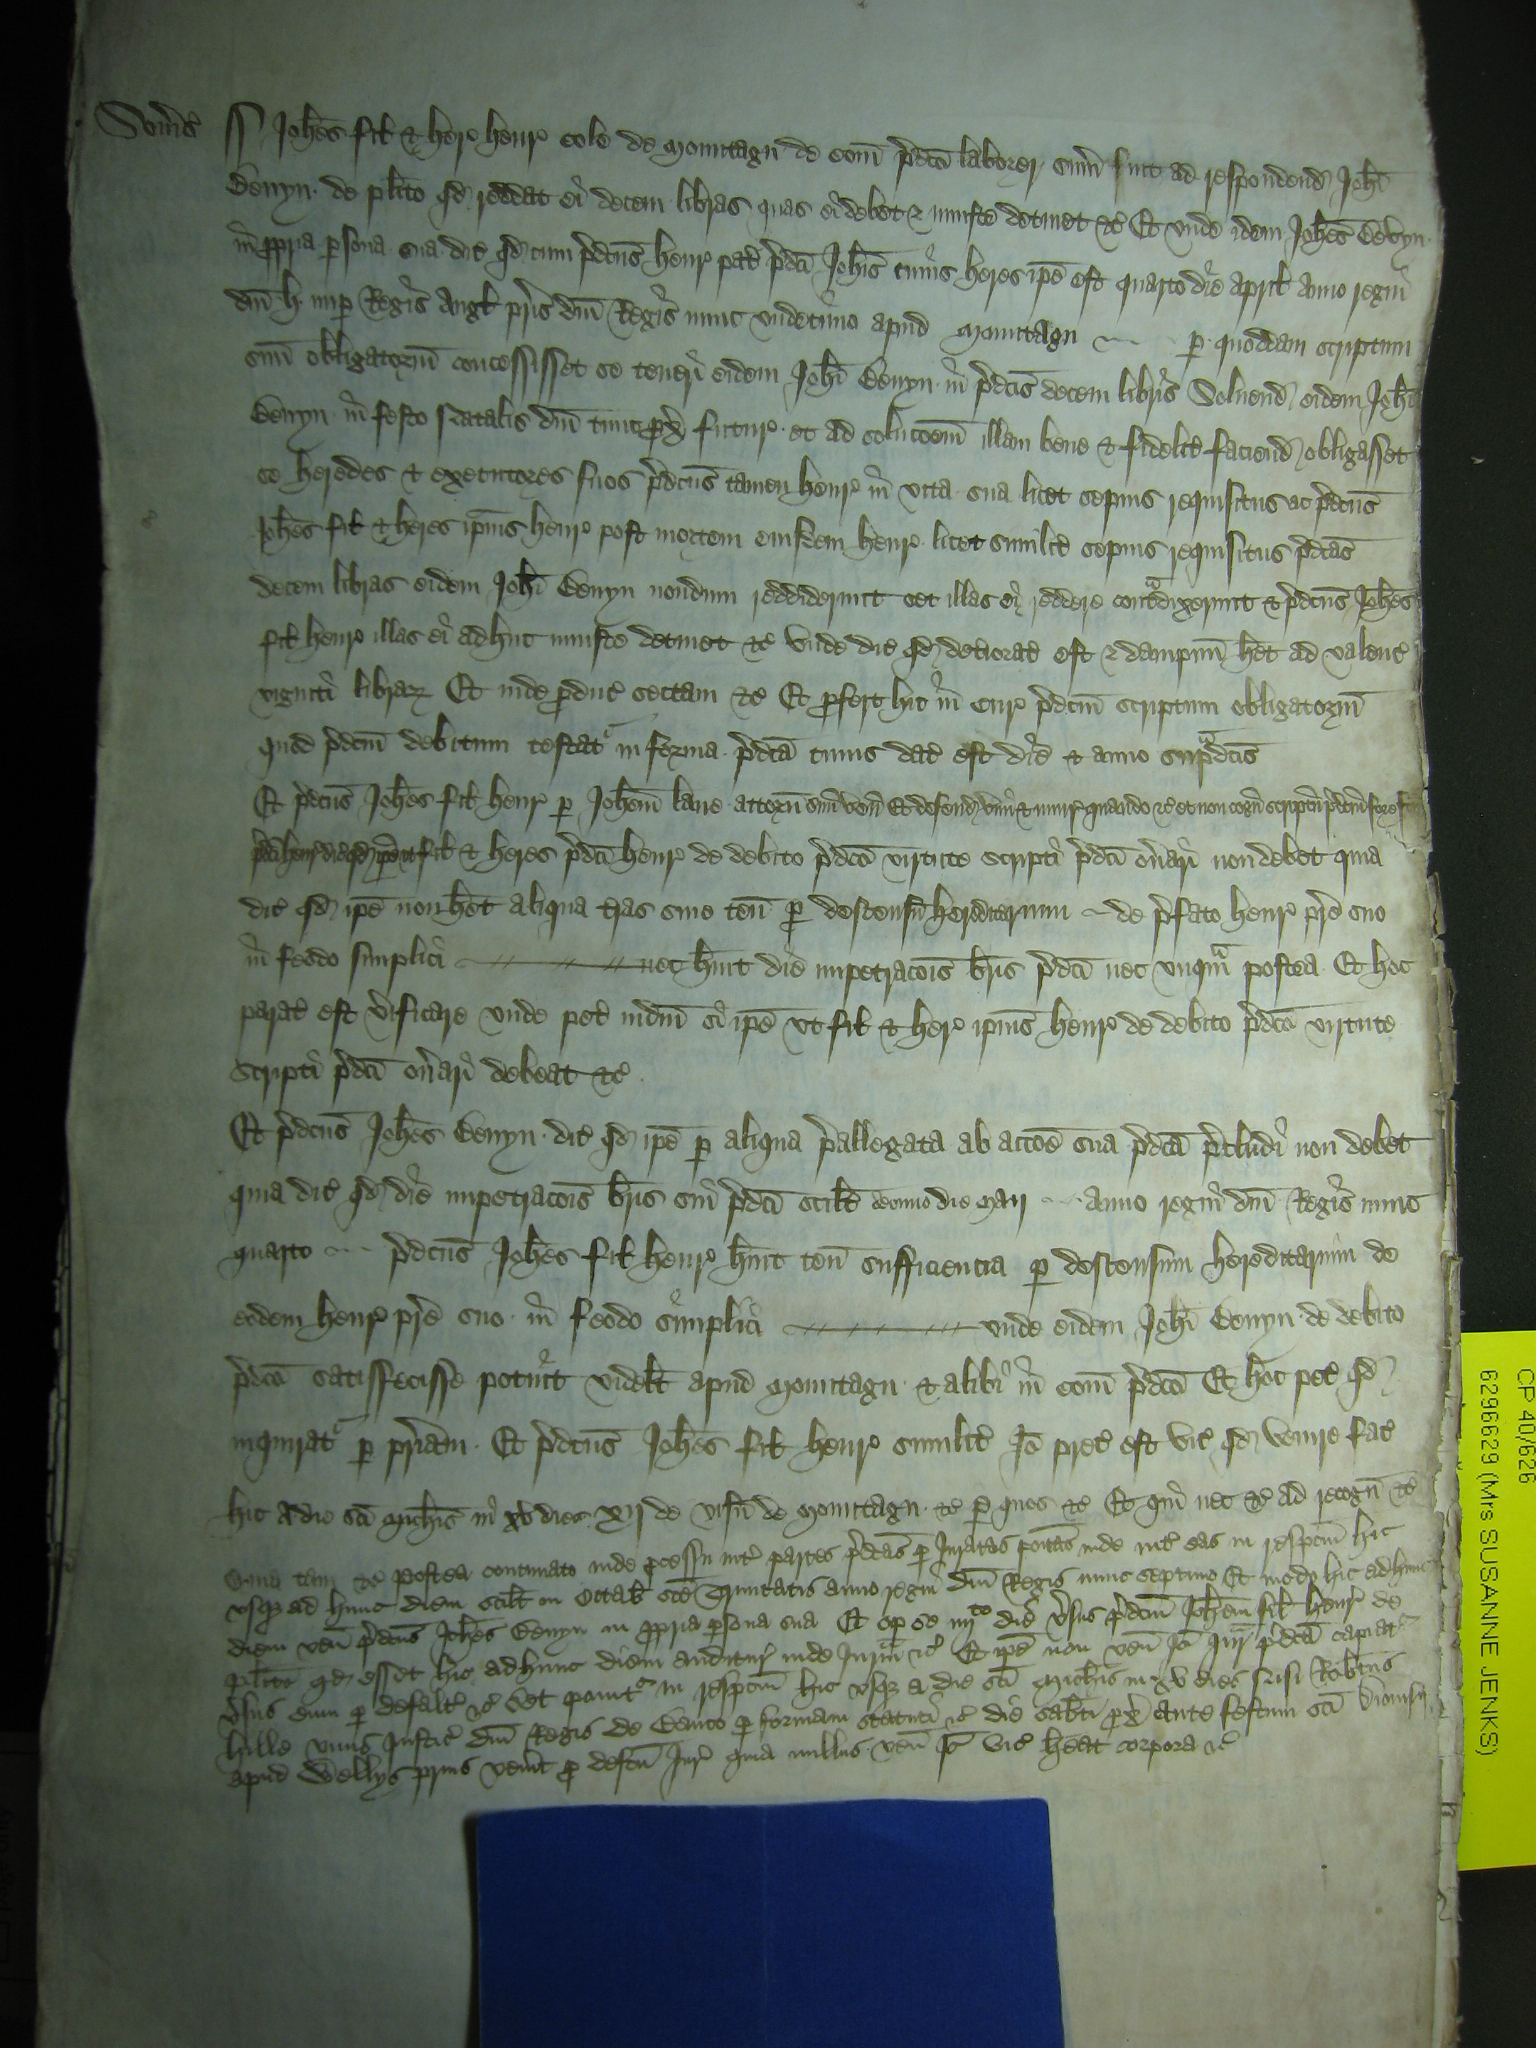 Som̄s ss Joh̄es fil & her̄ henr̄ cole de Mountagu de com̄ p̄dc̄o laborer sum̄ fuit ad respondend Joh̄i
Benyn de pl̄ito qd reddat ei decem libras quas ei debet & iniuste detinet &c Et unde idem Joh̄es Benyn
in ppria persona sua dic̄ qd cum p̄dc̄us henr̄ pat̄ p̄dc̄i Joh̄is cuius heres ip̄e est quarto die April anno regni
dn̄i h nup Regis Angl pris dn̄i Regis nunc undecimo apud Mountagu p quoddam scriptum
suū obligatoriū concessisset se teneri eidem Joh̄i Benyn in p̄dc̄is decem libris Soluend eidem Joh̄i
Benyn in festo Natalis dn̄i tunc px̄ futur̄ et ad soluc̄oem illam bene & fidelit̄ faciend obligasset
se heredes & executores suos p̄dc̄us tamen henr̄ in vita sua licet sepius requisitus ac p̄dc̄us
Joh̄es fil & heres ip̄ius henr̄ post mortem eiusdem henr̄ licet similit̄ sepius requisitus p̄dc̄as
decem libras eidem Joh̄i Benyn nondum reddiderunt set illas ei reddere cont̄dixerunt & p̄dc̄us Joh̄es
fil henr̄ illas ei adhuc iniuste detinet &c Unde dic̄ qd det̄iorat̄ est & dampnū h̄et ad valenc̄
viginti libraꝝ Et inde pduc̄ sectam &c Et pfert hic in cur̄ p̄dc̄m scriptum obligatoriū
quod p̄dc̄m debitum testat̄ in forma p̄dc̄a cuius dat̄ est die & anno sup̄dc̄is
Et p̄dc̄us Joh̄es fil henr̄ p Joh̄em lane attorn̄ suū ven̄ Et defend vim & iniur̄ quando &c et non cogn̄ scriptū p̄dc̄m fore fc̄m
p̄dc̄i henr̄ dic̄ qd ip̄e ut fil & heres p̄dc̄i henr̄ de debito p̄dc̄o virtute scripti p̄dc̄i on̄ari non debet quia
dic̄ qd ip̄e non h̄et aliqua t̄ras siue ten̄ p descensū hereditarium de p̄fato henr̄ pr̄e suo
in feodo simplici nec h̄uit die impetrac̄ois br̄is p̄dc̄i nec unqm̄ postea Et hoc
parat̄ est v̄ificare unde pet̄ iudm̄ si ip̄e ut fil & her̄ ip̄ius henr̄ de debito p̄dc̄o virtute
scripti p̄dc̄i on̄ari debeat &c
Et p̄dc̄us Joh̄es Benyn dic̄ qd ip̄e p aliqua p̄allegata ab acc̄oe sua p̄dc̄a p̄cludi non debet
quia dic̄ qd die impetrac̄ois br̄is sui p̄dc̄i scil̄t decimo die Maii anno regni dn̄i Regis nunc
quarto p̄dc̄us Joh̄es fil henr̄ h̄uit ten̄ sufficiencia p descensum hereditarium de
eodem henr̄ pr̄e suo in feodo simplici unde eidem Joh̄i Benyn de debito
p̄dc̄o satisfecisse potuit videl̄t apud Mountagu & alibi in com̄ p̄dc̄o Et hoc pet̄ qd
inquirat̄ p pr̄iam Et p̄dc̄us Joh̄es fil henr̄ similit̄ Jō prec̄ est vic̄ qd venire fac̄
hic a die sc̄i Mich̄is in xv dies xij de visn̄ de Mountagu &c p quos &c Et qui nec &c ad recogn̄ &c
Quia tam &c Postea continuato inde pcessu int̄ partes p̄dc̄as p Juratas po͞itas inde int̄ eas in respc̄m hic
usqȝ ad hunc diem scil̄t in Octab̄ sc̄e Trinitatis anno regni dn̄i Regis nunc septimo Et modo hic ad hunc
diem ven̄ p̄dc̄us Joh̄es Benyn in ppria psona sua Et op se iiijto die v̄sus p̄dc̄m Joh̄em fil henr̄ de
pl̄ito qd esset hic ad hunc diem auditur̄ inde Jur̄m &c Et ip̄e non ven̄ Jō Jur̄ p̄dc̄a capiat̄
v̄sus eum p defalt̄ &c Set ponit̄ in respc̄m hic usqȝ a die sc̄i Mich̄is in xv dies Nisi Rob̄tus
hille unus Justic̄ dn̄i Regis de Banco p formam statuti &c die sabb̄ti px̄ ante festum sc̄i Dionisij
apud Wellys prius ven̄it p defc̄u Jur̄ quia nullus ven̄ Jō vic̄ h̄eat corpora &c
CP 40/626
6296629 (Mrs SUSANNE JENKS)